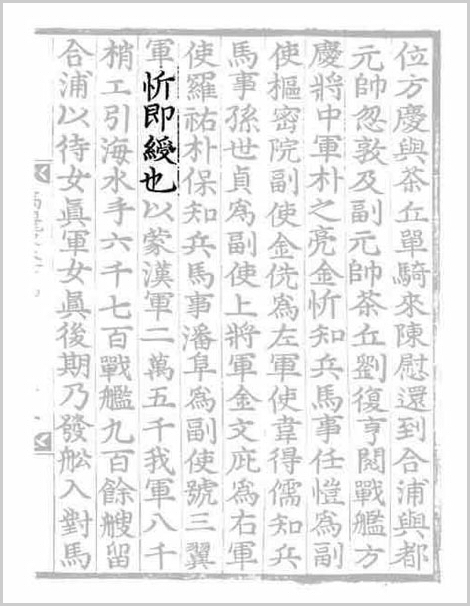 位方慶與茶丘單騎來陳慰還到合浦與都
元帥忽敦及副元帥茶丘劉復亨閱戰艦方
慶將中軍朴之亮金忻知兵馬事任愷爲副
使樞密院副使金侁爲左軍使韋得儒知兵
馬事孫世貞爲副使上將軍金文庇爲右軍
使羅祐朴保知兵馬事潘阜爲副使號三翼
軍忻即綬也以蒙漢軍二萬五千我軍八千
梢工引海水手六千七百戰艦九百餘艘留
合浦以待女眞軍女眞後期乃發舩入對馬